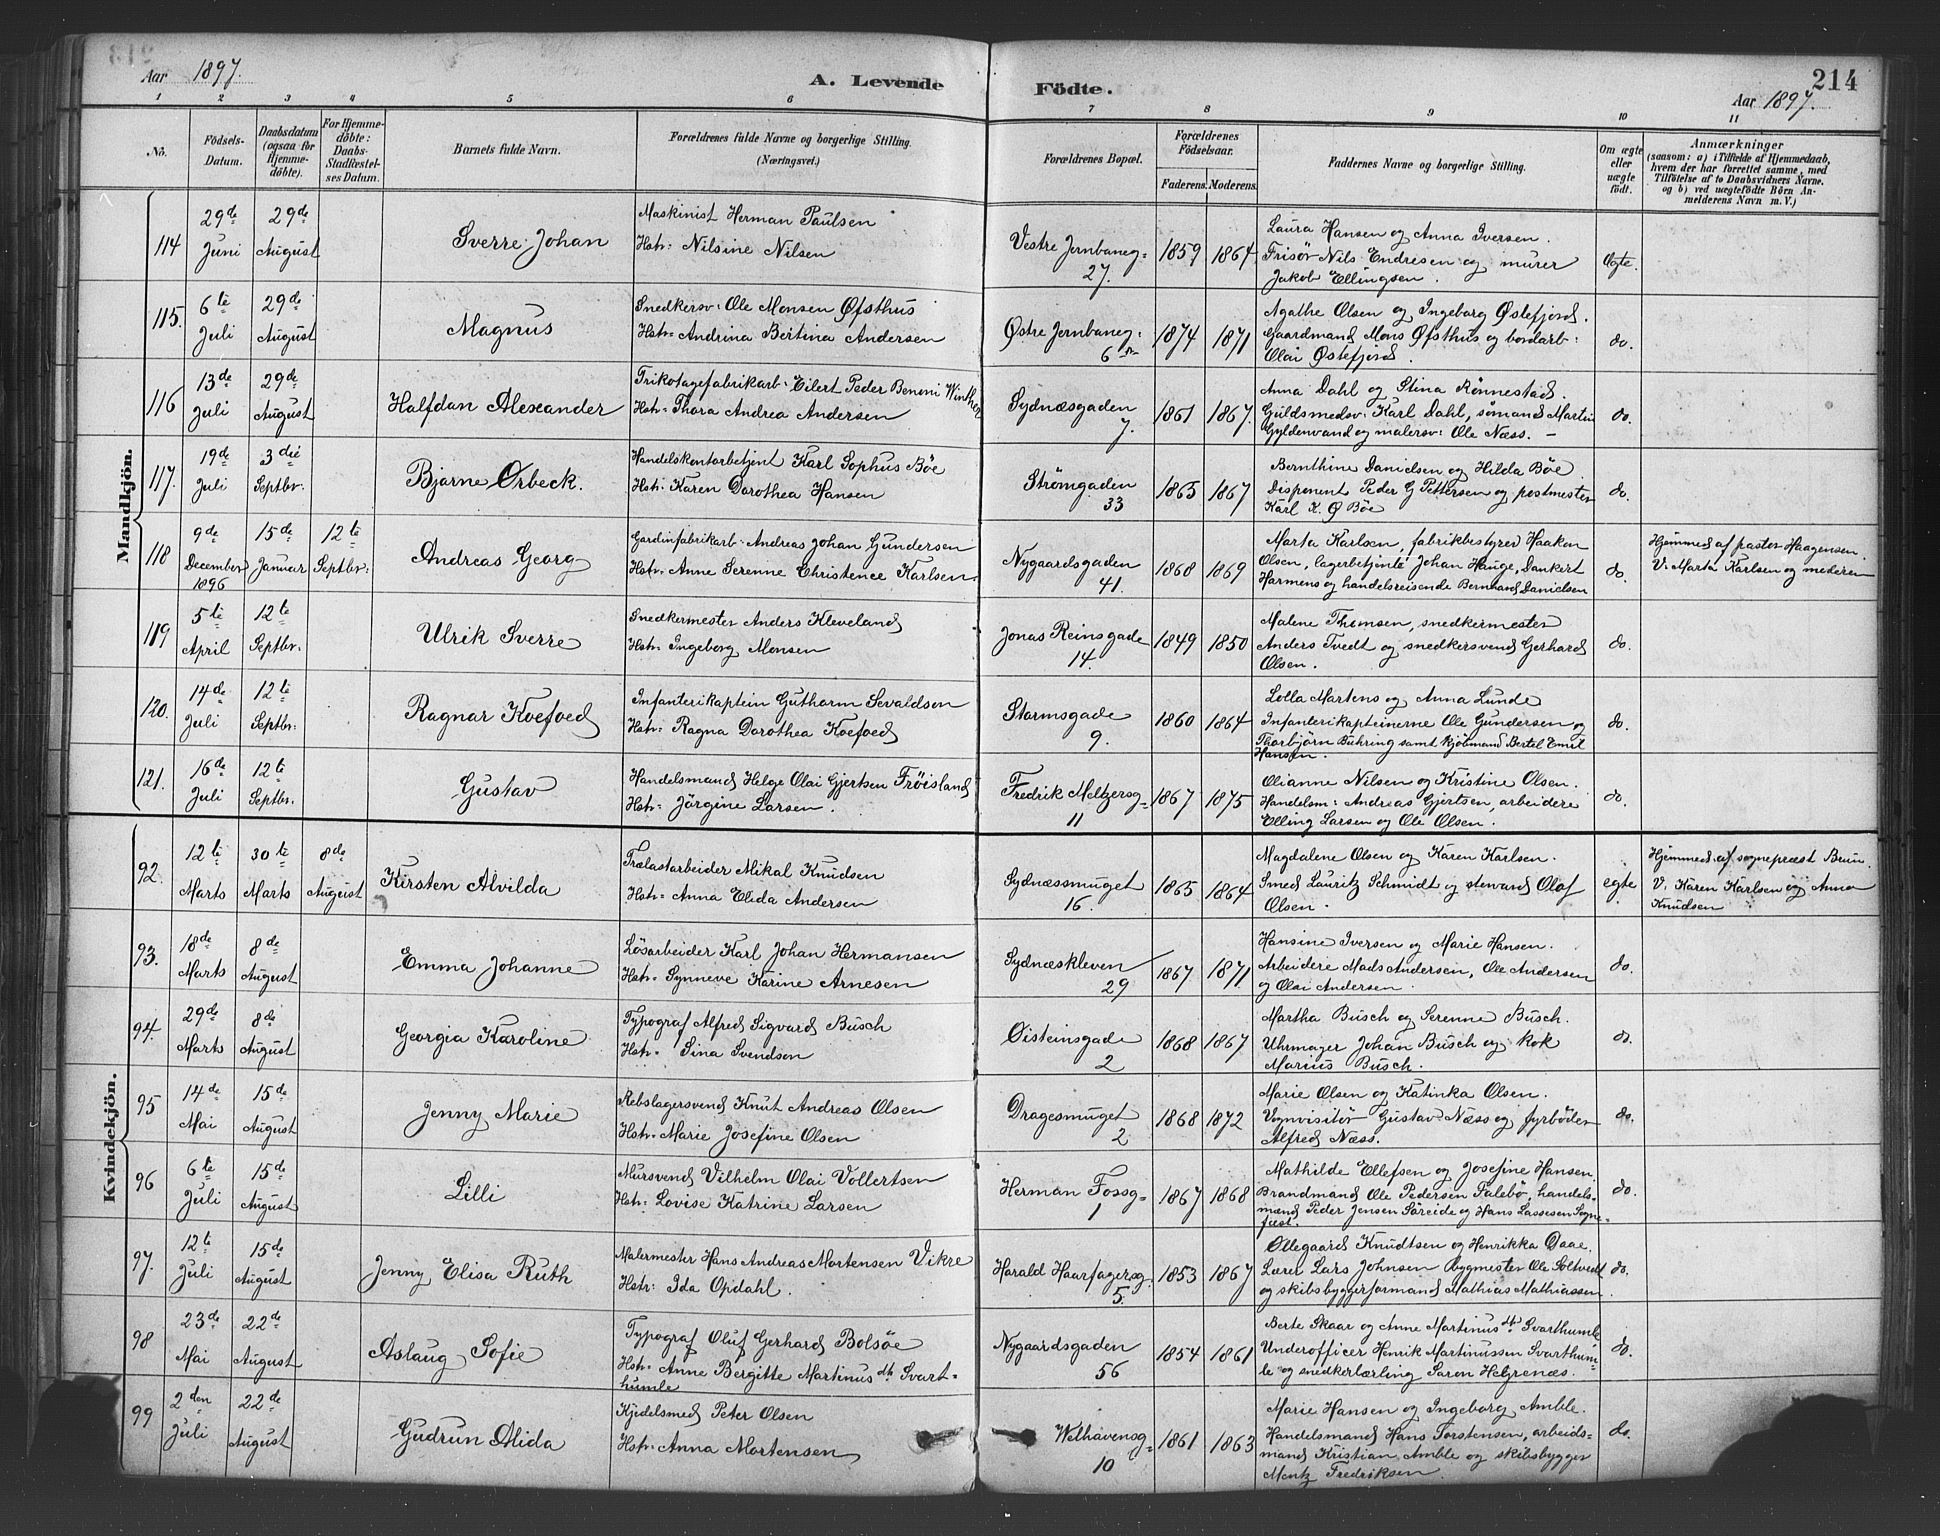 Aar 1897.
A. Levende Födte.
214
Aar 1897.
1 2 3 4 5 6 7 8 9 10 11
No.
Födsels-Datum.
Daabsdatum (ogsaa for Hjemmedöbte).
For Hjemmedöbte: Daabs-Stadfæstelses Datum.
Barnets fulde Navn.
Forældrenes fulde Navne og borgerlige Stilling. (Næringsvei.)
Forældrenes Bopæl.
Forældrenes Födselsaar.
Faderens. Moderens.
Faddernes Navne og borgerlige Stilling.
Om ægte eller uægte födt.
Anmærkninger
(saasom: a) i Tilfælde af Hjemmedaab, hvem der har forrettet samme, med Tilföielse af to Daabsvidners Navne. og b) ved uægtefödte Börn Anmelderens Navn m. V.)
Mandkjön.
114 29de Juni 29de August Sverre Johan
Maskinist Herman Paulsen
Hstr: Nilsine Nilsen
Vestre Jernbaneg: 27. 1859 1864
Laura Hansen og Anna Iversen.
Frisör Nils Endresen og murer
Jakob Ellingsen.
Ægte.
115. 6te Juli 29de August Magnus
Snedkersv: Ole Monsen Øfsthus
Hstr: Andrina Bertina Andersen
Østre Jernbaneg: 6 1874 1871
Agathe Olsen og Ingeborg Østefjord.
Gaardmand Mons Øfsthus og bordarb:
Olai Østefjord.
do.
116 13de Juli 29de August Halfdan Alexander
Trikotagefabrikarb: Eilert Peder Benoni Winther
Hstr: Thora Andrea Andersen
Sydnæsgaden 7. 1861 1867.
Anna Dahl og Stina Rönnestad.
Guldsmedsv: Karl Dahl, sömand Martin
Gyldenvand og malersv: Ole Næss. –
do.
117. 19de Juli 3die Septbr: Bjarne Ørbeck.
Handelskontorbetjent Karl Sophus Böe
Hstr: Karen Dorothea Hansen
Strömgaden 33 1865 1867
Bernthina Danielsen og Hilda Böe
Disponent Peder G Pettersen og postmester
Karl K. Ø Böe
do.
118 9de December 1896 15de Januar 12te Septbr: Andreas Georg
Gardinfabrikarb: Andreas Johan Gundersen
Hstr: Anne Serenne Christence Karlsen.
Nygaardsgaden 41. 1868 1869
Marta Karlsen, fabrikbestyrer Haakon
Olsen, lagerbetjente Johan Hauge, Dankert
Harmens og handelsreisende Bernhard Danielsen
do.
Hjemmed af pastor Haagensen.
V: Marta Karlsen og moderen
119 5te April 12te Septbr: Ulrik Sverre
Snedkermester Anders Kleveland
Hstr: Ingeborg Monsen
Jonas Reinsgade 14. 1849 1850
Malene Thomsen, snedkermester
Anders Tvedt og snedkersvend Gerhard
Olsen.
do.
120. 14de Juli 12te Septbr: Ragnar Koefoed
Infanterikaptein Guthorm Sevaldson
Hstr: Ragna Dorothea Koefoed
Stormsgade 9. 1860 1864
Lolla Martens og Anna Lunde
Infanterikapteinerne Ole Gundersen og
Thorbjörn Buhring samt kjöbmand Bertel Emil
Hansen.
do.
121. 16de Juli 12te Septbr: Gustav
Handelsmand Helge Olai Gjertsen Fröisland
Hstr: Jörgine Larsen.
Fredrik Meltzersg: 11 1867 1875
Olianne Nilsen og Kristine Olsen.
Handelsm: Andreas Gjertsen, arbeidere
Elling Larsen og Ole Olsen.
do.
Kvindekjön.
92. 12te Marts 30te Marts 8de August Kirsten Alvilda
Trælastarbeider Mikal Knudsen
Hstr: Anna Elida Andersen
Sydnæssmuget 16. 1865 1864
Magdalene Olsen og Karen Karlsen.
Smed Lauritz Schmidt og steward Olaf
Olsen.
egte.
Hjemmed. af sognepræst Bruun.
V. Karen Karlsen og Anna
Knudsen
93. 18de Marts 8de August Emma Johanne
Lösarbeider Karl Johan Hermansen
Hstr: Synneve Karine Arnesen
Sydnæskleven 29 1867 1871
Hansine Iversen og Marie Hansen.
Arbeidere Mads Andersen, Ole Andersen
og Olai Andersen.
do.
94. 29de Marts 8de August Georgia Karoline
Typograf Alfred Sigvard Busch
Hstr: Sina Svendsen
Øisteinsgade 2 1868 1867
Martha Busch og Serenne Busch.
Uhrmager Johan Busch og kok
Marius Busch.
do.
95 14de Mai 15de August Jenny Marie
Rebslagersvend Knut Andreas Olsen
Hstr: Marie Josefine Olsen
Dragesmuget 2 1868 1872
Marie Olsen og Katinka Olsen.
Vognvisitör Gustav Næss og fyrböder
Alfred Næss.
do.
96 6te Juli 15de August Lilli
Mursvend Vilhelm Olai Vollertsen
Hstr: Lovise Katrine Larsen
Herman Fossg: 1 1867 1868
Mathilde Ellefsen og Josefine Hansen.
Brandmand Ole Pedersen Talebö, handels-
mænd Peder Jensen Söreide og Hans Lassesen Sogne-
fæst.
do.
97. 12te Juli 15de August Jenny Elisa Ruth
Malermester Hans Andreas Mortensen Vikre
Hstr: Ida Opdahl.
Harald Haarfagersg. 5. 1853 1867
Ollegaard Knudtsen og Henrikka Daae.
Lærer Lars Johnsen bygmester Ole Soltvedt
og skibsbyggerformand Mathias Mathiassen
do.
98 23de Mai 22de August Aslaug Sofie
Typograf Oluf Gerhard Bolsöe
Hstr: Anne Bergitte Martinus dtr Svart-
humle
Nygaardsgaden 56 1854 1861
Berte Skaar og Anne Martinus dtr Svarthumle
Underofficer Henrik Martinussen Svarthum-
le og snedkerlærling Søren Helgrenæs.
do.
99 2den Juli 22de August Gudrun Alida
Kjedelsmed Peter Olsen
Hstr: Anna Mortensen
Welhavensg: 10 1861 1863
Marie Hansen og Ingeborg Amble.
Handelsmand Hans Torstensen, arbeids-
mand Kristian Amble og skibsbygger
Mentz Fredriksen.
do.